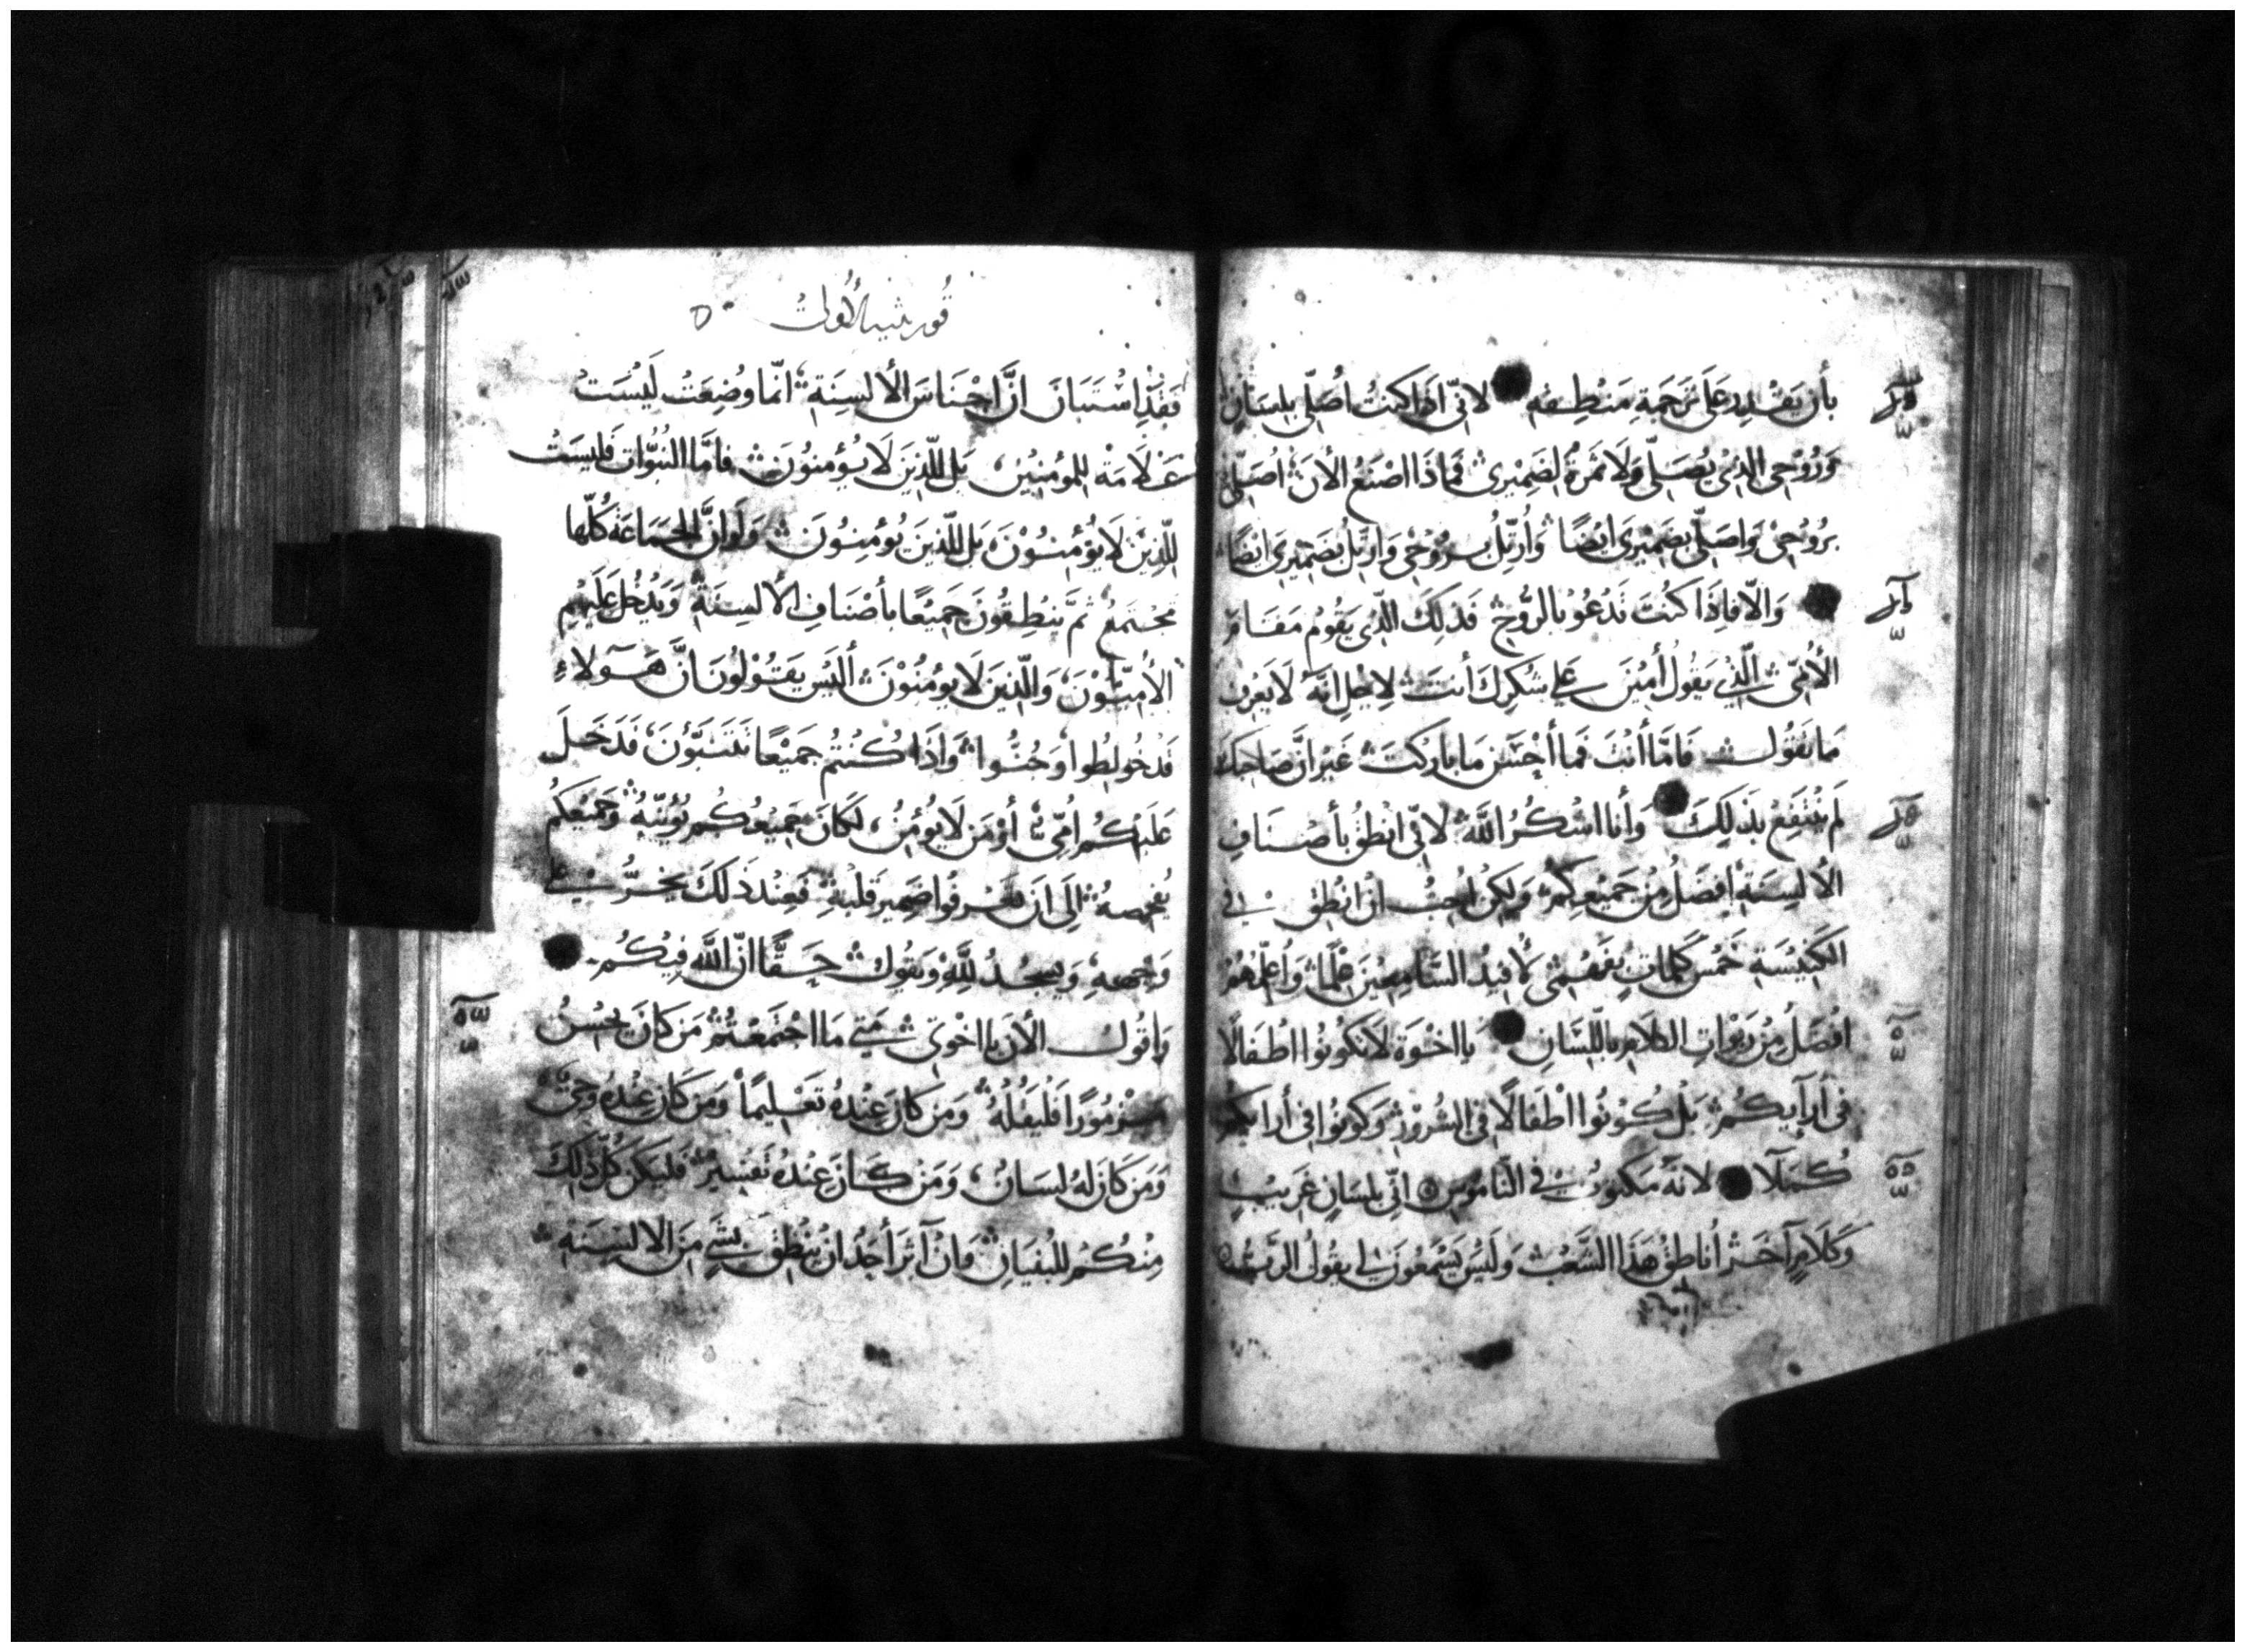 بأن يَقْدِر عَلَى تَرجَمَةِ مَنْطِقِه لاني اذا كنتُ اُصَلّي بلِسَانٍ
وَرُوْحِي الذِيْ يُصَلّي وَلَا ثمَرةُ لضَمِيْرى فمَاذَا اصْنَعُ الأنَ اُصَلّي
برُوْحِيْ وَاصَلّي بضَمِيْرِى ايْضًا وَاُرتّلُ برُوْحْي وَارَتّل بِضَمِيْرِى ايْضًا
وَالّا فاِذَا كنُتَ تَدْعُوْ بالرُّوْحِ فَذلِكَ الّذِي يَقُومُ مَقَامَ
الأُمِّيّ الّذِيْ يَقُولُ أَمِيْنَ عَلي شكرِكَ أنتَ لاِجْلِ انّهُ لَا يَعْرِفُ
مَا تقُولُ فَامَّا أنْتَ فمَا أحْسَن مَا باركتَ غَيْرَ انَّ صَاحِبَكَ
لَم يَنْتَفِعْ بذَلِكَ وَأنا اشْكُرُ اللّهَ لاني انْطقُ بأصْنَافِ
الألسِنَةِ افضَلُ مِنْ جَمِيْعِكُم وَلكِنْ اُحِبُّ انْ انْطِقَ في
الكَنِيْسَةِ خَمْسَ كَلِمَاتٍ بفَهْمِي لاُفيْدُ السَّامِعِيْنَ عْلمًا وَاُعَلّمَهُمْ
افْضَلُ مِنْ رَبْوَاتِ الكَلَامِ بِاللّسَانِ يا اخْوَة لَا تكُونُوا اطْفَالًا
في أرآيكُمْ بَلْ كُوْنُوا اطْفَالًا في الشُرُوْرِ وَكونُوا في أرايكُم
كُمَلَا لانهُ مَكتوبُ في النّامُوسِ انّي بلسَانٍ غَرِيْبٍ
وَكَلَامٍ آخَرَ أُناطِقُ هَذَا الشَّعْبَ وَلَيْسَ يَسْمَعُونَ لي يقُولُ الرّبّ
قورنثيه الأولى
فَقَدِ اسْتَبَانَ انَّ اجْنَاسَ الألسِنَةِ انّما وُضِعَتْ لَيْسَتْ
عَلَامَةْ للمُؤمِنِيْنَ بَل للّذِيْنَ لَا يُؤمِنُوْنَ فامَّا النبُوّات فَليسَتْ
للّذِيْنَ لَا يُؤْمنُوْنَ بَل للّذينَ يُؤمِنُونَ وَلَو انَّ الجَمَاعَةَ كُلّهَا
تجْتمِعُ ثمَّ يَنطِقُونَ جَمِيْعًا بأصْنَافِ الألسِنَةِ وَيَدْخُل عَلَيْهِم
الأُمِيُّوْنَ وَالّذِيْنَ لَا يؤمُنُوْنَ ألَيْسَ يَقُوْلُوْنَ انَّ هَوُلَاءِ
قَدْ خُولِطُوا وَجُنُّوا وَاذَا كُنْتُم جَميْعًا تَتَنَبَّؤُنَ فَدَخَلَ
عَلَيْكُم اُمّيّ أوْ مَن لَا يُؤْمِنُ لَكَانَ جَمِيْعُكُم يُؤَنِّبهُ وَجَمِيْعُكُم
يُفَحِّصهُ الَى انَ تعْرِفُوا ضَمِيْرَ قَلْبِهِ فَعِنْدَ ذَلكَ يخرُّ علَى
وَجْههِ وَيسْجُدُ للّهِ وَيَقُولُ حَقًّا انّ اللّه فِيْكُم
وَاقُولُ الأنَ يا اخْوتي مَتَي مَا اجْتَمَعْتُمْ مَن كَانَ يُحْسِنُ
مَزْمُوْرًا فَلْيَقُلْهُ وَمَن كَانَ عِنْدهُ تَعْلِيمًا وَمَن كَانَ عِنْدهُ وَحْيٌ
وَمَن كَانَ لهُ لسَانٌ وَمَنْ كَانَ عِنْدهُ تَفسِيْر فَليَكُن كُلّ ذَلِكَ
مِنْكُمْ للبُنيَانِ وَانْ آثرَ أحَدُ انْ يَنْطِقَ بشَي مِنَ الالسِنَة